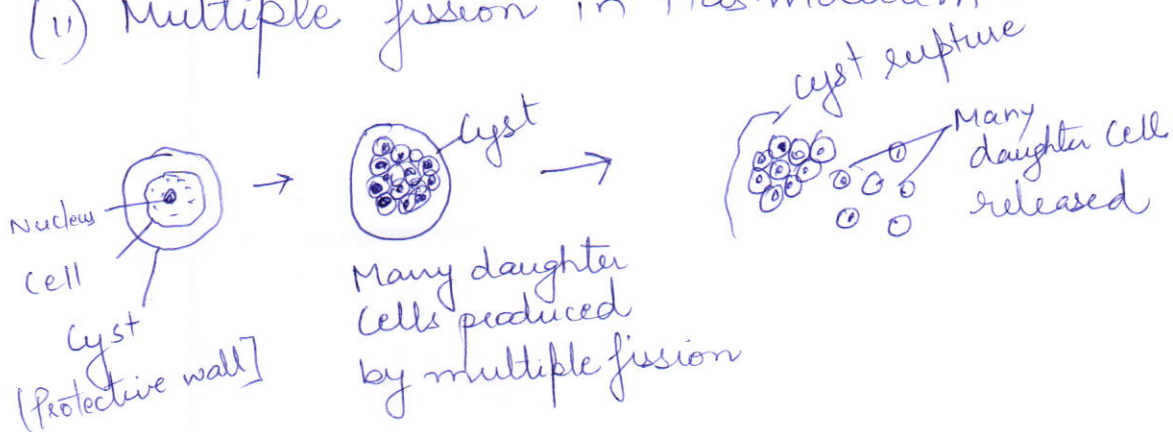 (ii) Multiple fission in Plasmodium
Nucleus
Cell
Cyst
(Protective wall]
Cyst
Many daughter
Cells produced
by multiple fission
Cyst rupture
Many
daughter Cells
released